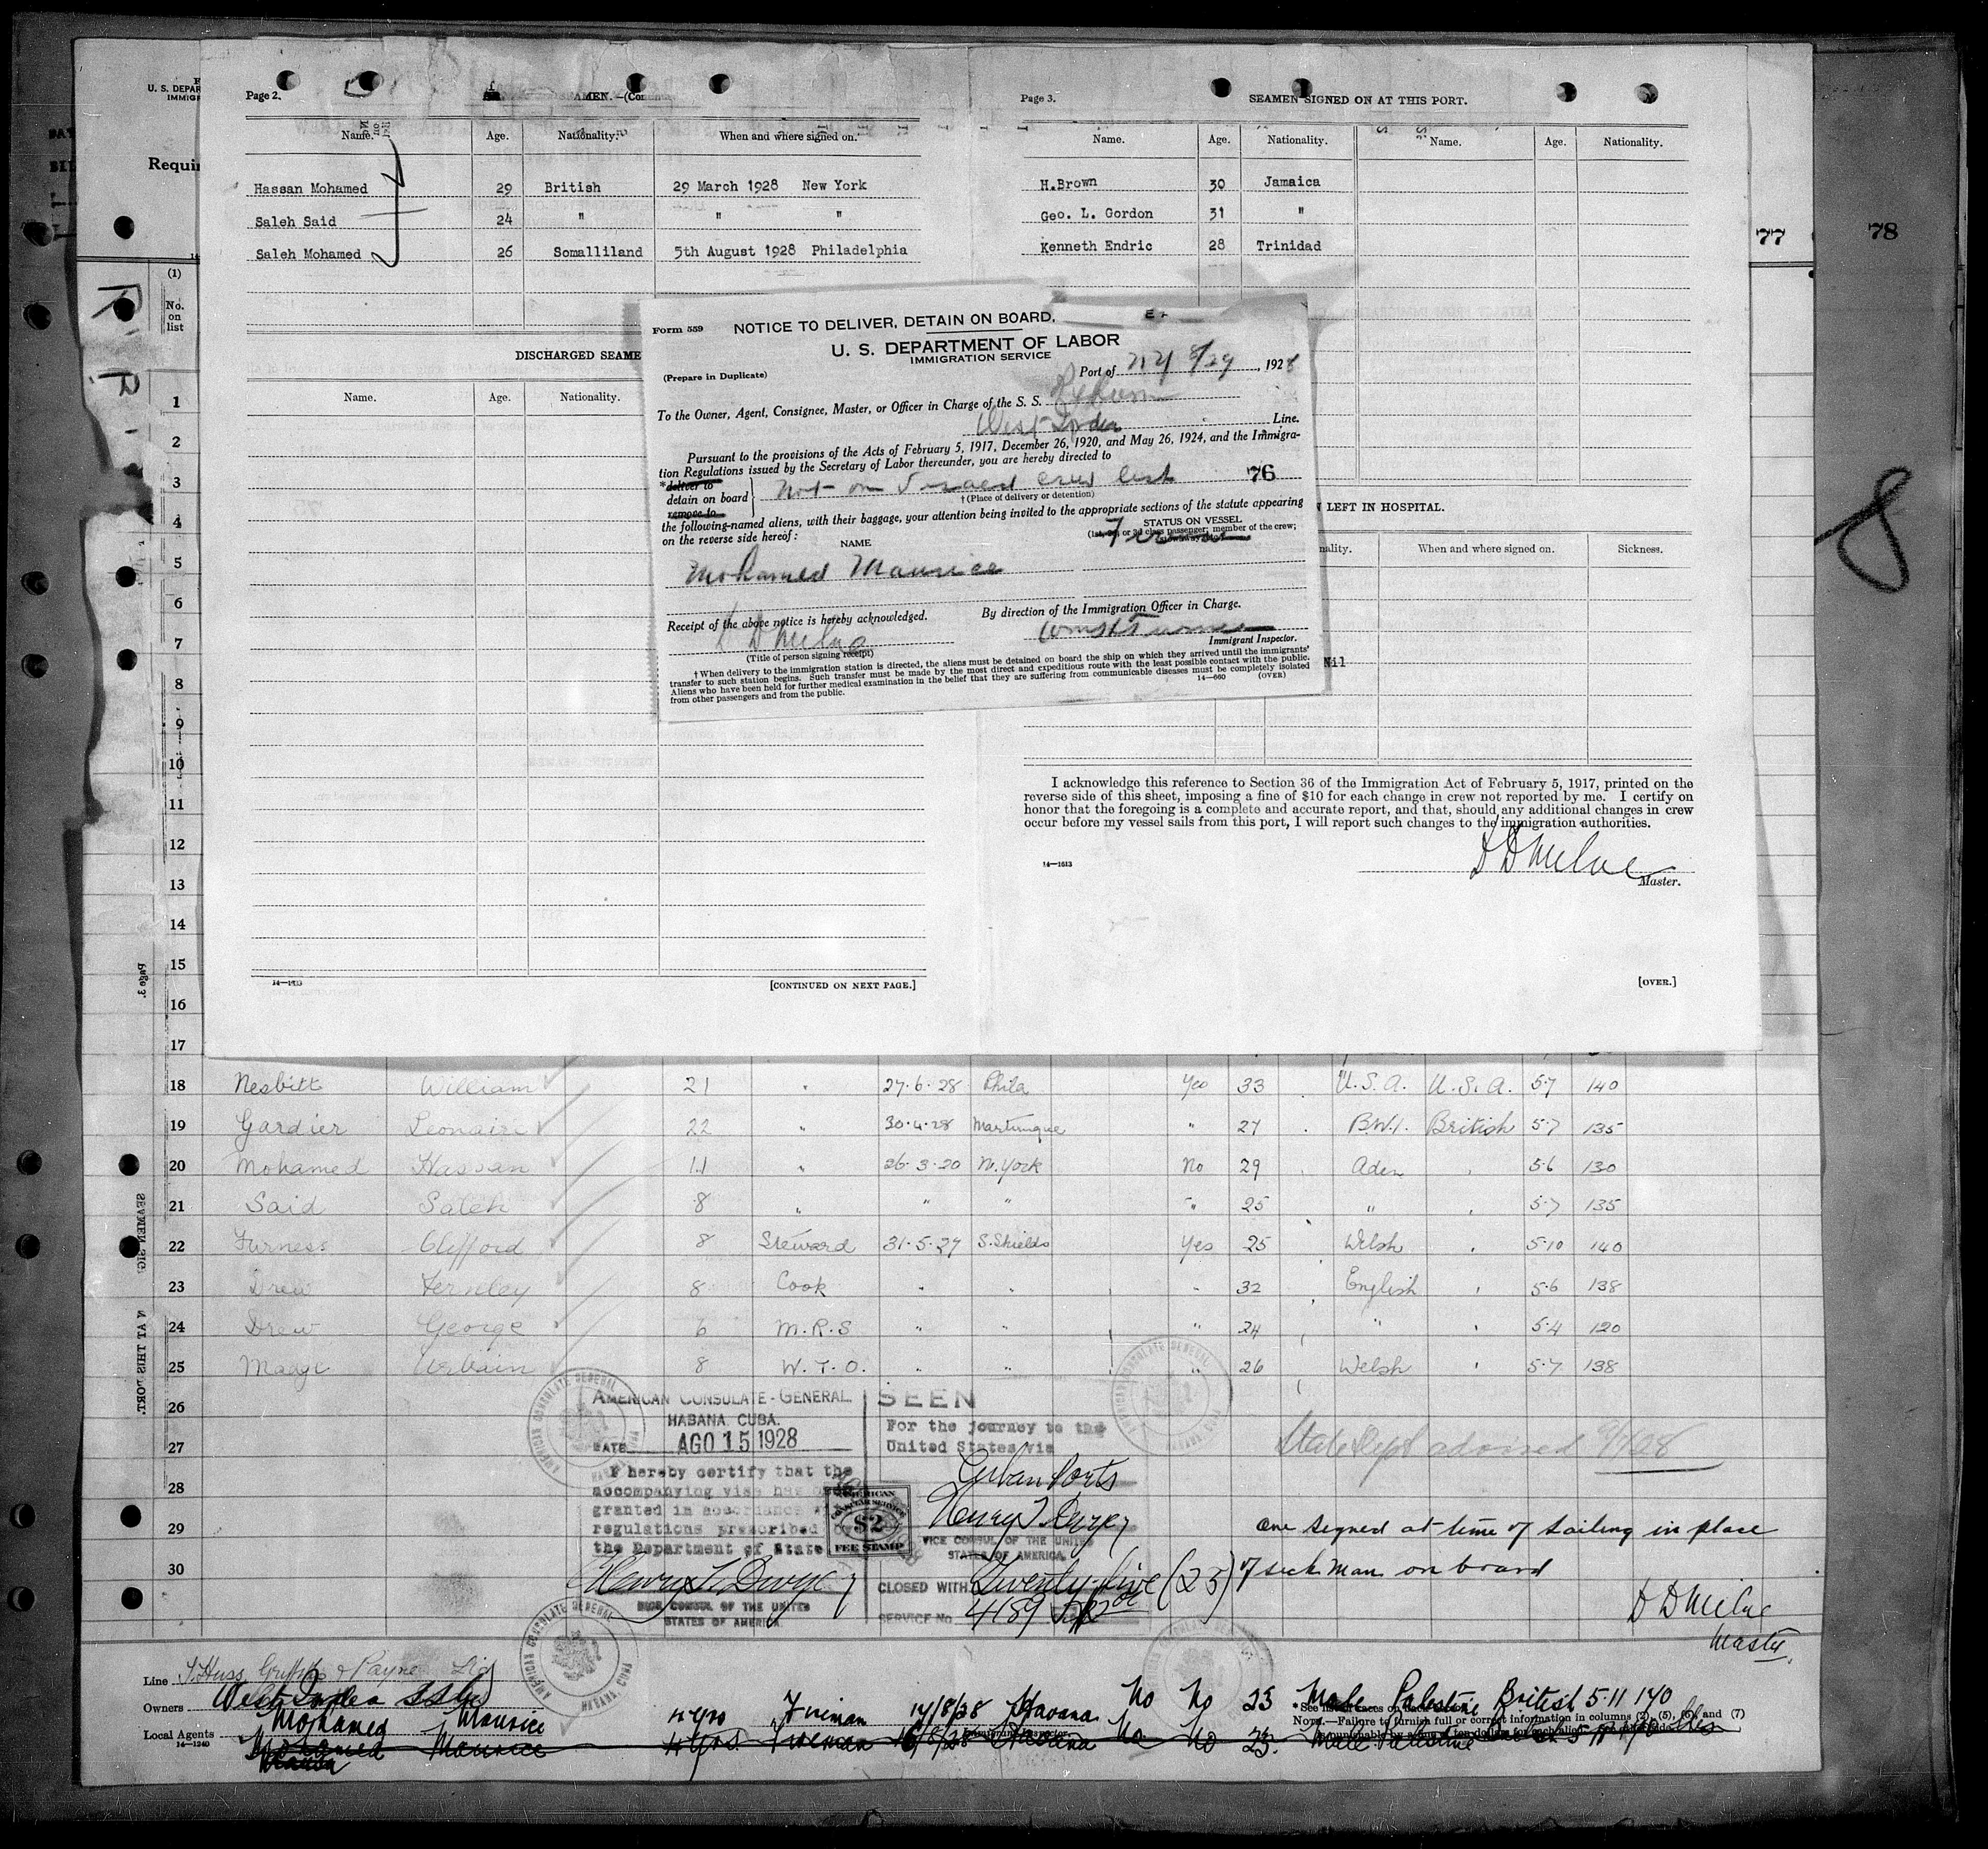 77
78
U. S. DEPAR
IMMIG
Requi
Page 2.
SEAMEN.—(Con
Name. Age. Nationality. When and where signed on.
Hassan Mohamed 29 British 29 March 1928 New York
Saleh Said 24 " " "
Saleh Mohamed 26 Somalliland 5th August 1928 Philadelphia
DISCHARGED SEAME
Name. Age. Nationality.
14—1413
[CONTINUED ON NEXT PAGE.]
Page 3.
SEAMEN SIGNED ON AT THIS PORT.
Name. Age. Nationality. Name. Age. Nationality.
H.Brown 30 Jamaica
Geo. L. Gordon 31 "
Kenneth Endric 28 Trinidad
LEFT IN HOSPITAL.
nality. When and where signed on. Sickness.
Nil
I acknowledge this reference to Section 36 of the Immigration Act of February 5, 1917, printed on the
reverse side of this sheet, imposing a fine of $10 for each change in crew not reported by me. I certify on
honor that the foregoing is a complete and accurate report, and that, should any additional changes in crew
occur before my vessel sails from this port, I will report such changes to the immigration authorities.
D D Milne
Master.
14—1613
[OVER.]
Form 559 NOTICE TO DELIVER, DETAIN ON BOARD,
U. S. DEPARTMENT OF LABOR
IMMIGRATION SERVICE
(Prepare in Duplicate)
Port of NY 8/29, 1928
To the Owner, Agent, Consignee, Master, or Officer in Charge of the S. S.
West India Line.
Pursuant to the provisions of the Acts of February 5, 1917, December 26, 1920, and May 26, 1924, and the Immigra-
tion Regulations issued by the Secretary of Labor thereunder, you are hereby directed to
*deliver to
detain on board
remove to
not on visaed crew list 76
†(Place of delivery or detention)
the following-named aliens, with their baggage, your attention being invited to the appropriate sections of the statute appearing
on the reverse side hereof:
NAME
STATUS ON VESSEL
(1st, 2d, or 3d class passenger; member of the crew;
Mohamed Maurice
Receipt of the above notice is hereby acknowledged. By direction of the Immigration Officer in Charge.
D D Milne
(Title of person signing receipt)
Immigrant Inspector.
†When delivery to the immigration station is directed, the aliens must be detained on board the ship on which they arrived until the immigrants'
transfer to such station begins. Such transfer must be made by the most direct and expeditious route with the least possible contact with the public.
Aliens who have been held for further medical examination in the belief that they are suffering from communicable diseases must be completely isolated
from other passengers and from the public.
14—660 (OVER)
8
(1)
No.
on
list
1
2
3
4
5
6
7
8
9
10
11
12
13
14
15
16
17
18 Nesbitt William 21 " 27.6.28 Phila Yes 33 U.S.A. U.S.A. 5.7 140
19 Gardier Leonaire 22 " 30.4.28 Martinique " 27 B.W.I. British 5.7 135
20 Mohamed Hassan 11 " 26.3.20 N.York No 29 Aden " 5.6 130
21 Said Saleh 8 " " " " 25 " " 5.7 135
22 Furness Clifford 8 Steward 31.5.27 S.Shields Yes 25 Welsh " 5.10 140
23 Drew Fernley 8 Cook " " " 32 English " 5.6 138
24 Drew George 6 M.R.S " " " 24 " " 5.4 120
25 Urbain 8 W.T.O. " " " 26 Welsh " 5.7 138
26
27
28
29
30
Page 3.
SEAMEN SIG
N AT THIS PORT.
AMERICAN CONSULATE-GENERAL
HABANA, CUBA.
DATE AGO 15 1928
I hereby certify that the
accompanying visa has been
granted in accordance
regulations prescribed by
the Department of State
Henry T. Dwyer
VICE CONSUL OF THE UNITED
STATES OF AMERICA
AMERICAN
CONSULAR SERVICE
$2
FEE STAMP
SEEN
For the journey to the
United States via
Cuban Ports
Henry T. Dwyer
VICE CONSUL OF THE UNITED
STATES OF AMERICA
CLOSED WITH Twenty-five (25)
SERVICE No. 4189
AMERICAN CONSULATE GENERAL
HABANA, CUBA
State Dept advised
One signed at time of sailing in place
of sick man on board
D D Milne
Master.
Line
Owners West India S S Co
Local Agents
14—1240
Mohamed Maurice 4 yrs Fireman 14/8/28 Havana No No 23 Male Palestine British 5.11 170
Mohamed Maurice 4 yrs. Fireman Havana No No 23. Male Palestine
*See list of races on
NOTE.—Failure to furnish full or correct information in columns (2), (5), (6) and (7)